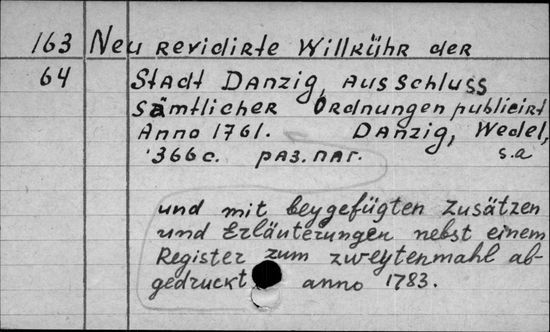 163 Neu revidirte Willkühr der
64 Stadt Danzig, aus Schluss
sämtlicher Ordnungen publicirt
Anno 1761. Danzig, Wedel,
366 с. раз. паг. s.a
und mit beygefügten Zusätzen
und Erläuterungen nebst einem
Register zum zweytenmahl ab-
gedruckt anno 1783.